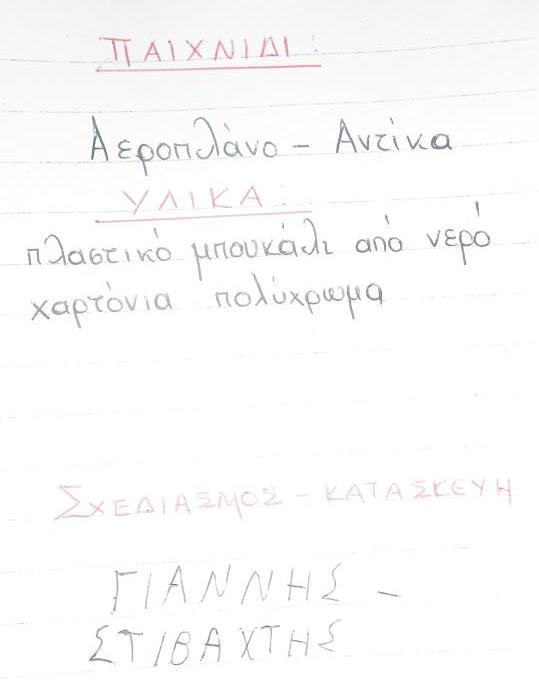 ΠΑΙΧΝΙΔΙ:
Αεροπλάνο - Αντίκα
ΥΛΙΚΑ:
πλαστικό μπουκάλι από νερό
χαρτόνια πολύχρωμα
ΣΧΕΔΙΑΣΜΟΣ - ΚΑΤΑΣΚΕΥΗ
ΓΙΑΝΝΗΣ -
ΣΤΙΒΑΧΤΗΣ